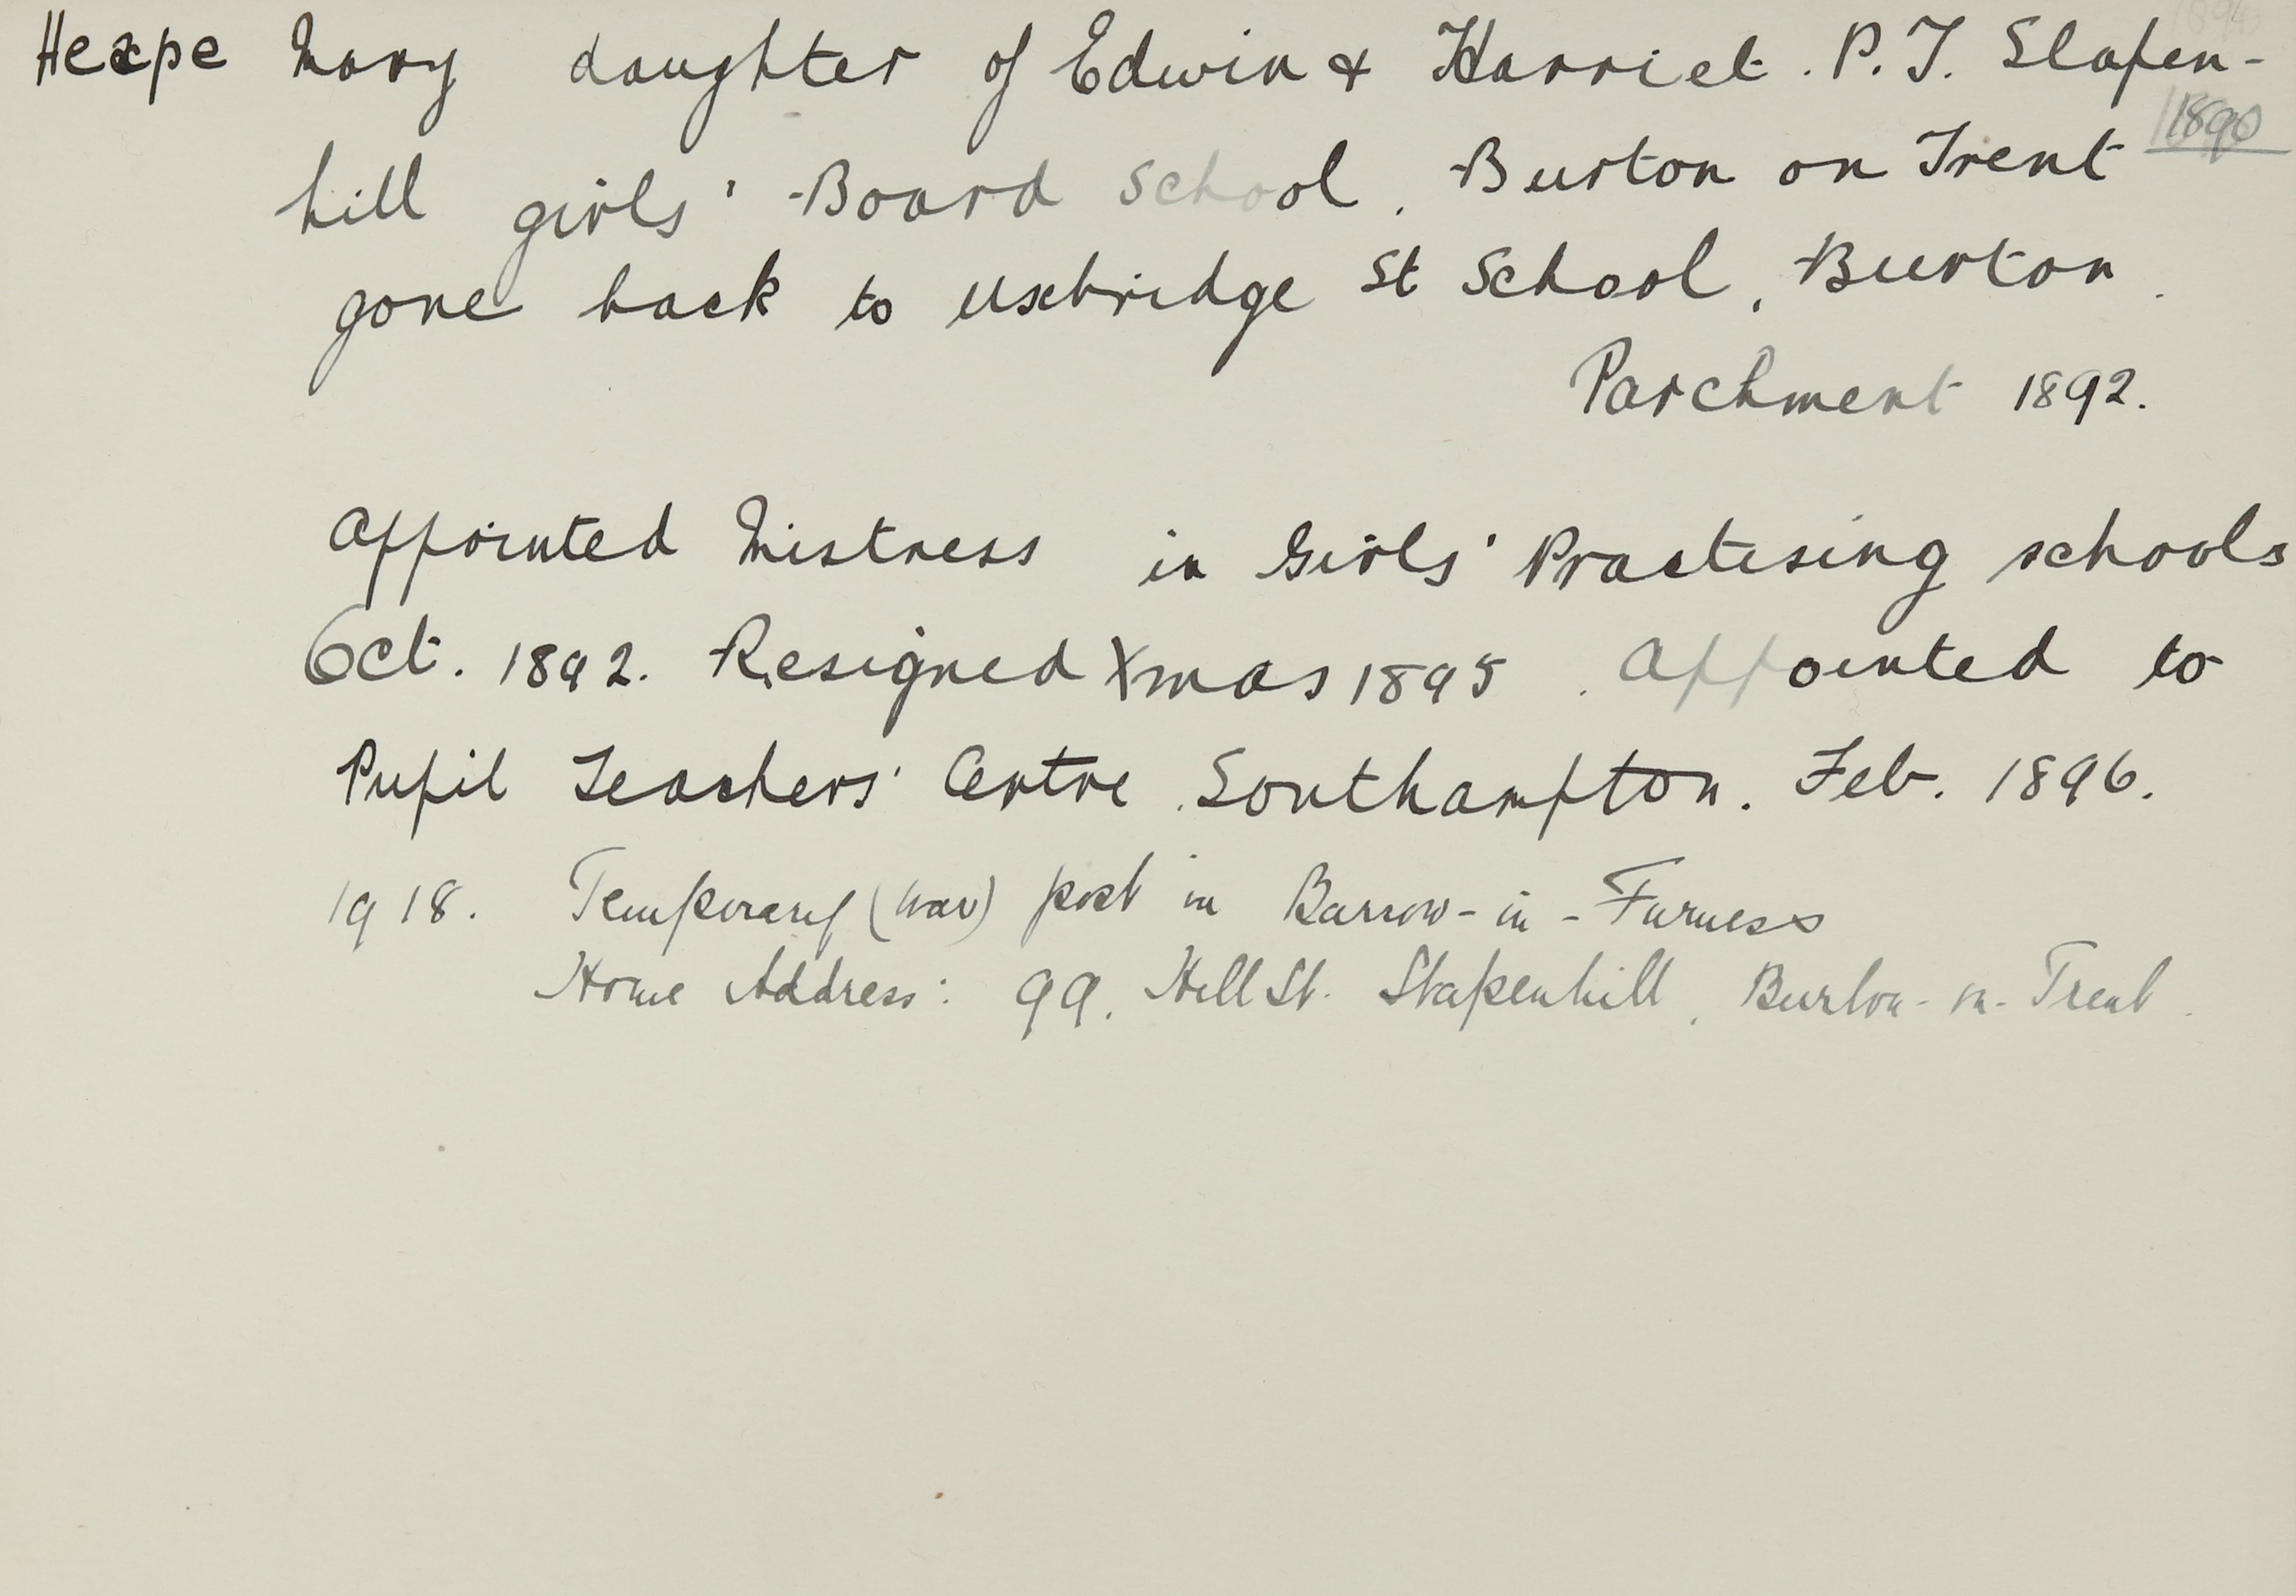 Heape Mary daughter of Edwin & Harriet. P.T. Stapen-
1890
hill girls' Board School, Burton on Trent
gone back to Uxbridge St School, Burton.
Parchment 1892.
Appointed Mistress in Girls' Practising schools
Oct. 1892. Resigned Xmas 1895. Appointed to
Pupil Teachers' Centre Southampton. Feb. 1896.
1918. Temporary (War) post in Barrow-in-Furness
Home Address: 99. Hill St. Stapenhill, Burton-on-Trent.